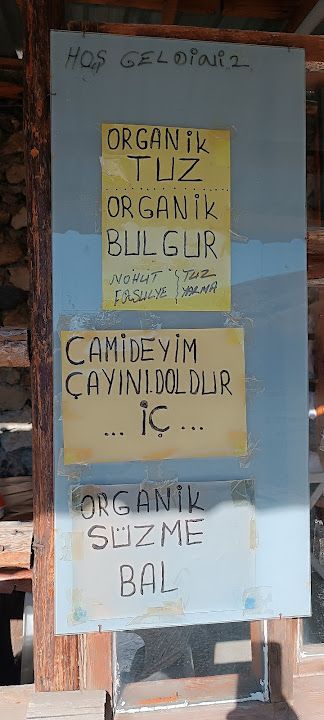 HOŞ GELDİNİZ
ORGANİK
TUZ
ORGANİK
BULGUR
NOHUT { TUZ
FASULYE { YARMA
CAMİDEYİM
ÇAYINI.DOLDUR
... İÇ ...
ORGANİK
SÜZME
BAL